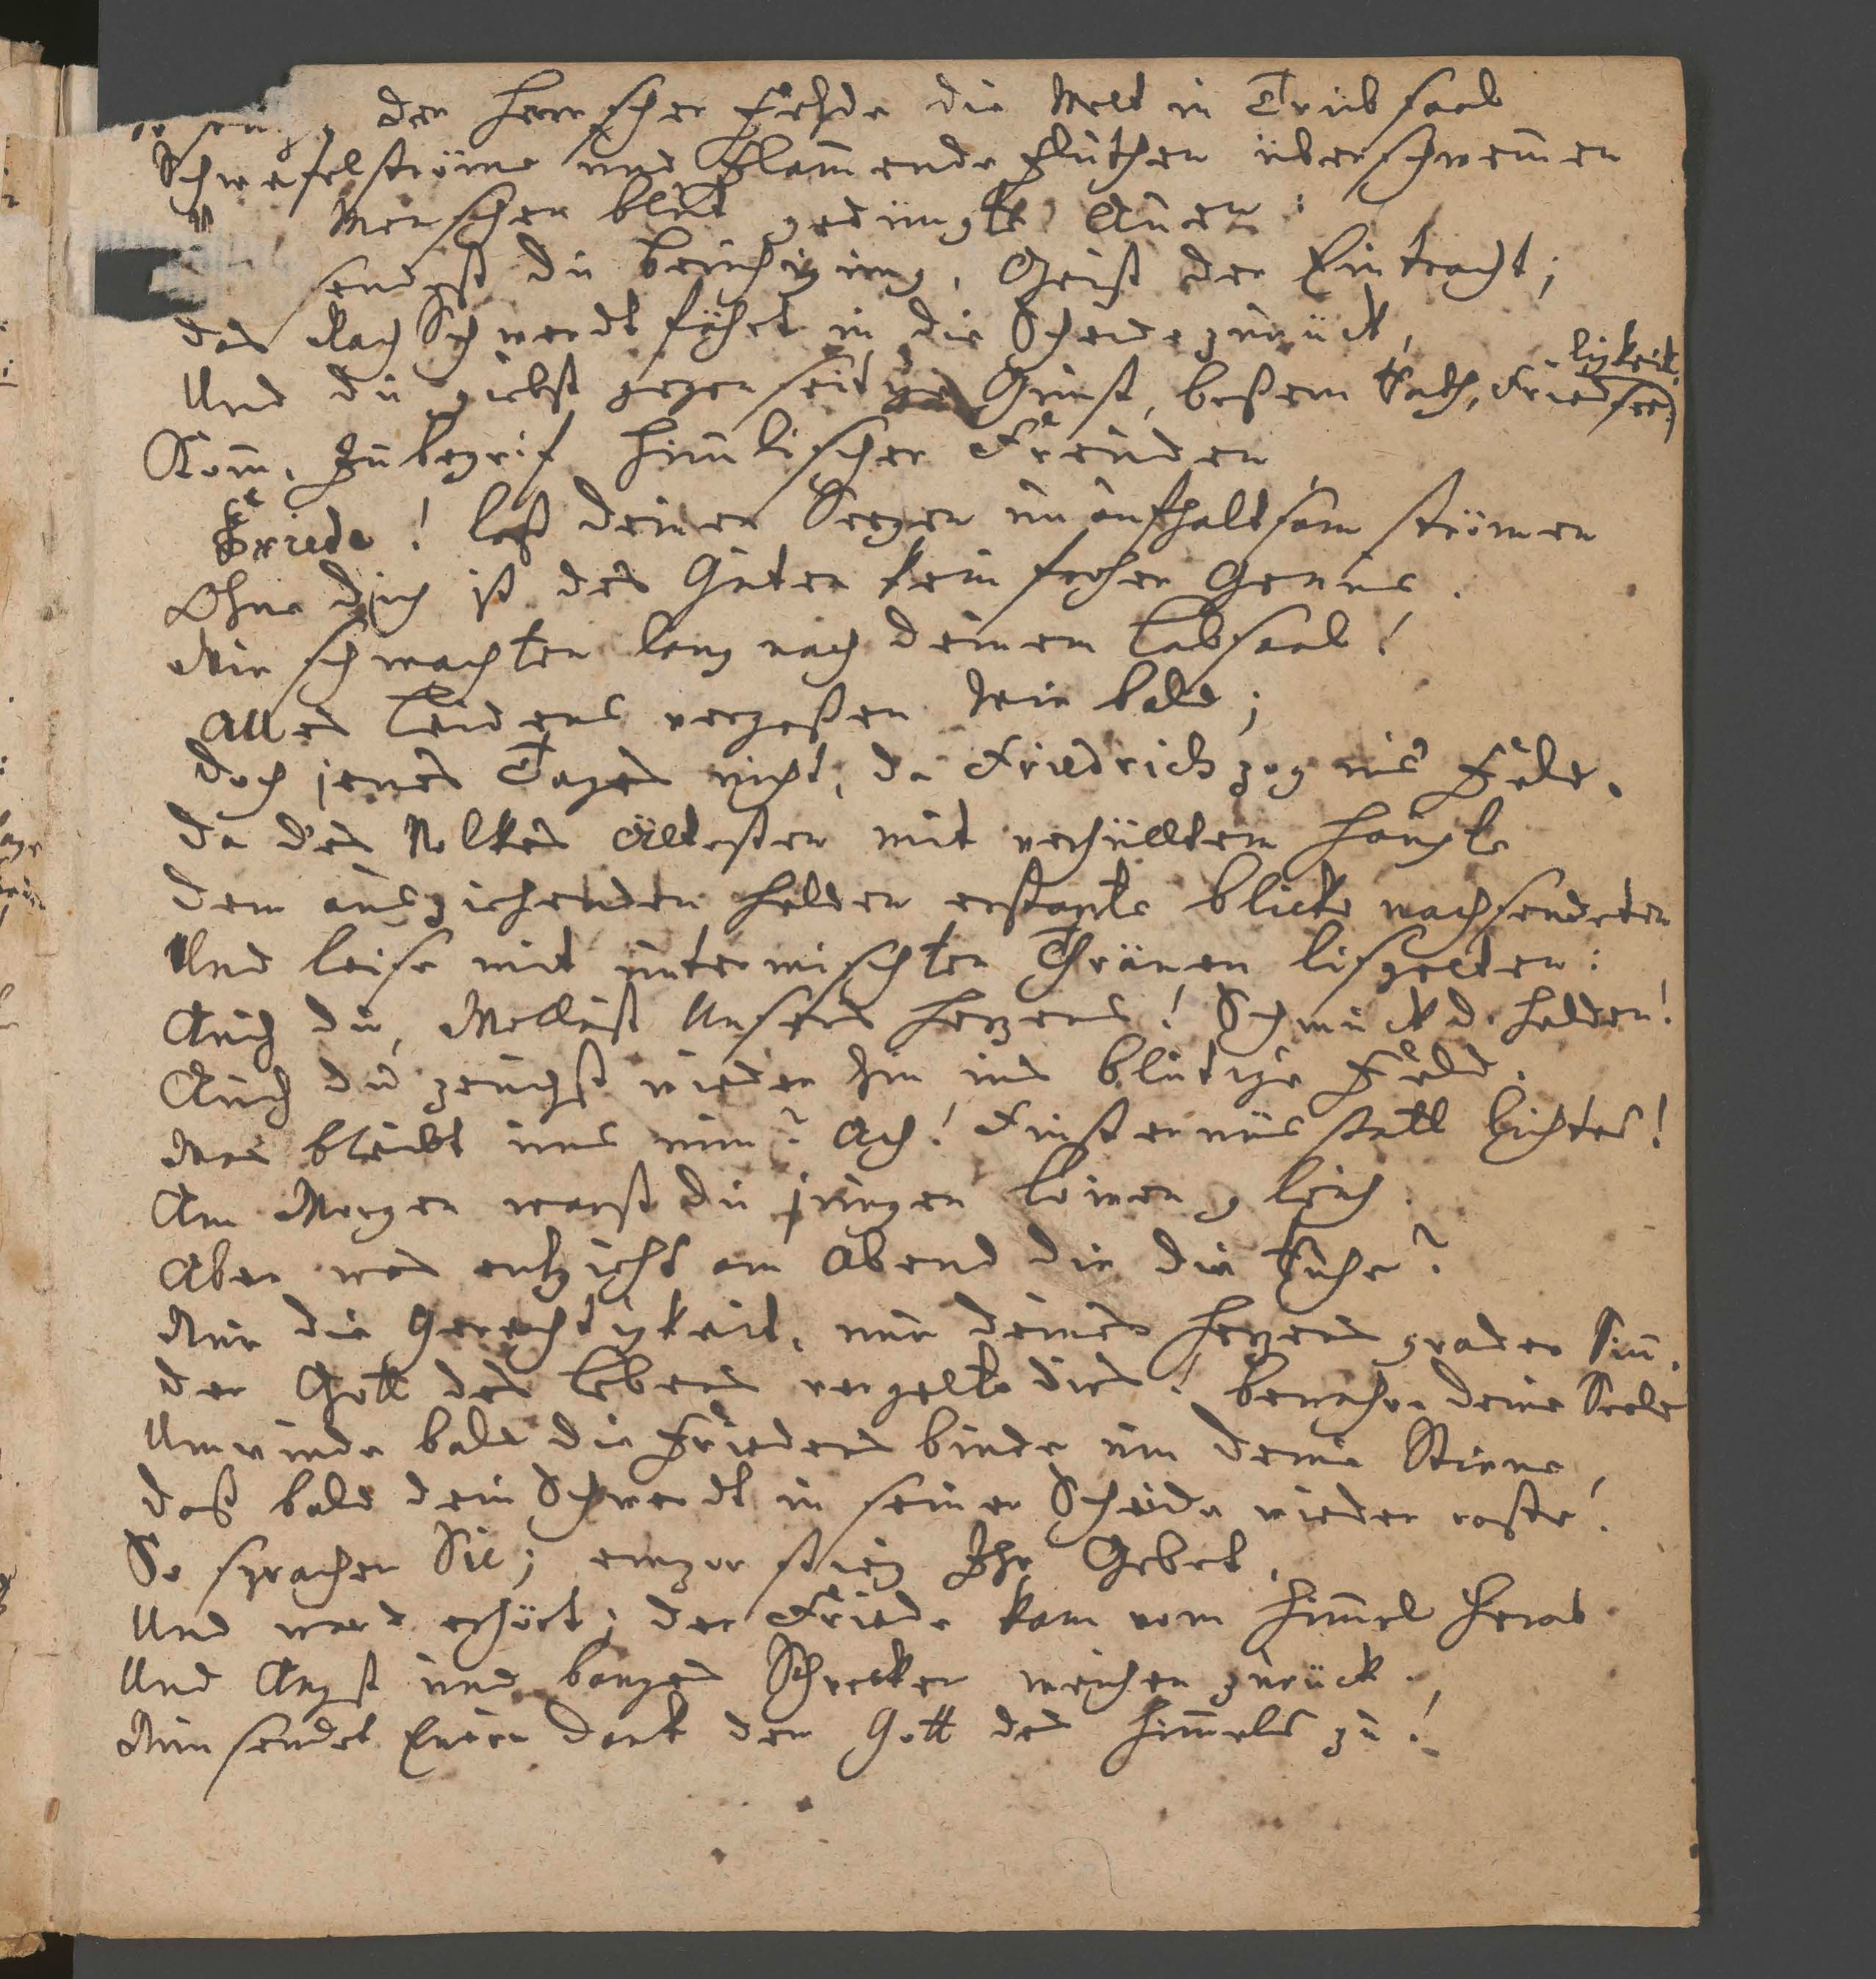 der Herrscher Fehde die Welt in Trübsaal
Schwefelströme und Flam̅ende Fluthen überschwem̅en
Menschen blut gedüngte Auen:
sendest du Beruhigung, Geist der Eintracht;
das Rach Schwerdt fährt in die Scheide zurück,
Und du giebst gegenseitge Gunst, beßern Rath, Friedsee=
ligkeit.
Kom̅, Inbegrif him̅lischer Freuden
Friede! laß deinen Seegen unaufhaltsam strömen
Ohne dich ist des Guten kein froher Genus.
Wir schmachten lang nach deinem Labsaal!
Alles Leidens vergeßen wir bald;
Doch jenes Tages nicht, da Friedrich zog ins Feld.
Da des Volkes Ältesten mit verhülltem Haupte
Dem ausziehenden Helden erstarrte Blicke nachsendeten
Und leise mit untermischten Thränen lispelten:
Auch du, Wollust Unsers Herzens! Schmuck d. Helden!
Auch du zeuchst wieder hin ins blutige Feld.
Was bleibt uns nun? Ach! Finsternüs statt Lichtes!
Am Morgen warst du jungen Löwen gleich.
Aber was entzieht am Abend dir die Ruhe?
Nur die Gerechtigkeit, nur deines Herzens grader Sin̅.
Der Gott des Lebens vergelte dirs! bewahre deine Seele
Umwinde bald die Friedens binde um deine Stirne,
Daß bald dein Schwerdt in seiner Scheide wieder raste!
So sprachen Sie; empor stieg Ihr Gebet,
Und ward erhört; der Friede kam vom Him̅el herab
Und Angst und banges Schrecken weichen zurück.
Nun sendet Euren Dank dem Gott des Him̅els zu!